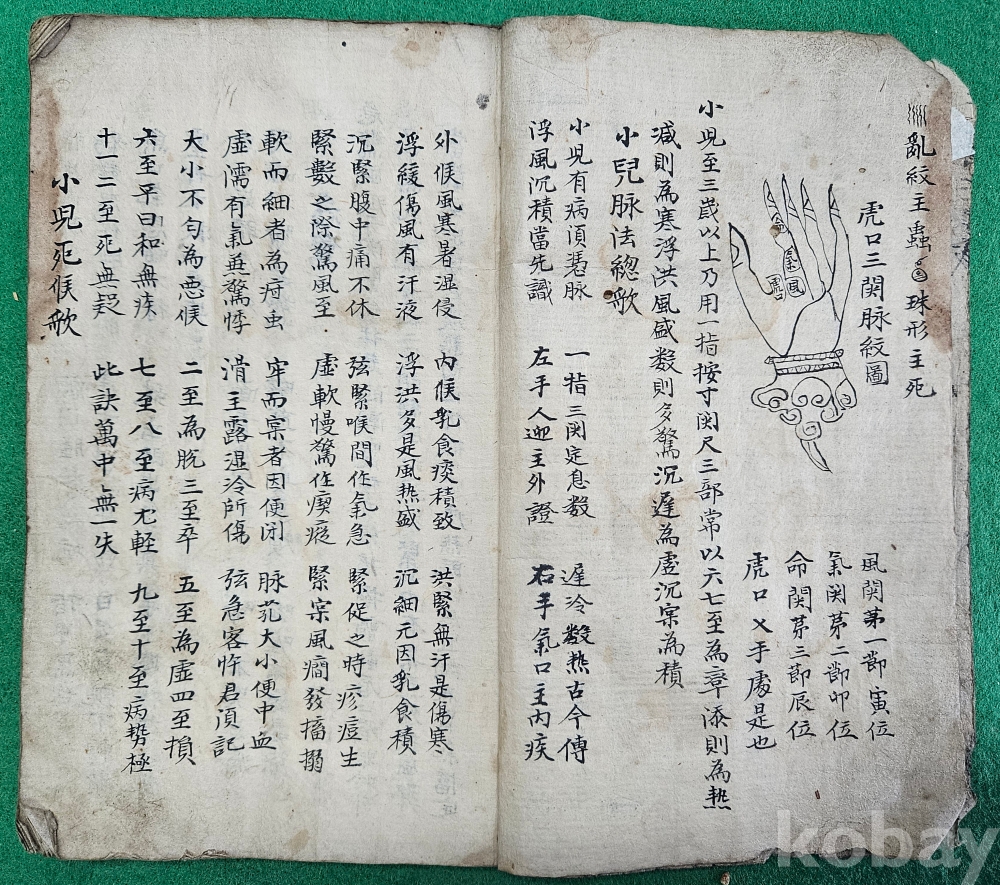 亂紋主蟲 珠形主死
虎口三関脉紋圖
命
氣
風
風関苐一節寅位
氣関苐二節卯位
命関苐三節辰位
虎口乂手處是也
小児至三歲以上乃用一指按寸関尺三部常以六七至為章添則為热
减則為寒浮洪風盛数則多驚沉遅為虛沉実為積
小兒脉法總歌
小児有病湏慿脉 一指三関定息数 遅冷数热古今傳
浮風沉積當先識 左手人迎主外證 右手氣口主內疾
外候風寒暑湿侵 內候乳食痰積致 洪緊無汗是傷寒
浮緩傷風有汗液 浮洪多是風热盛 沉細元因乳食積
沉緊腹中痛不休 弦緊喉間作氣急 緊促之時疹痘生
緊數之際驚風至 虛軟慢驚作瘈瘲 緊実風癎發搐搦
軟而細者為疳虫 牢而実者因便闭 脉芤大小便中血
虛濡有氣兼驚悸 滑主露湿冷所傷 弦急客忤君湏記
大小不匀為悪候 二至為脫三至卒 五至為虛四至損
六至平曰和無疾 七至八至病尤輕 九至十至病势極
十一二至死無疑 此訣萬中無一失
小児死候歌
kobay